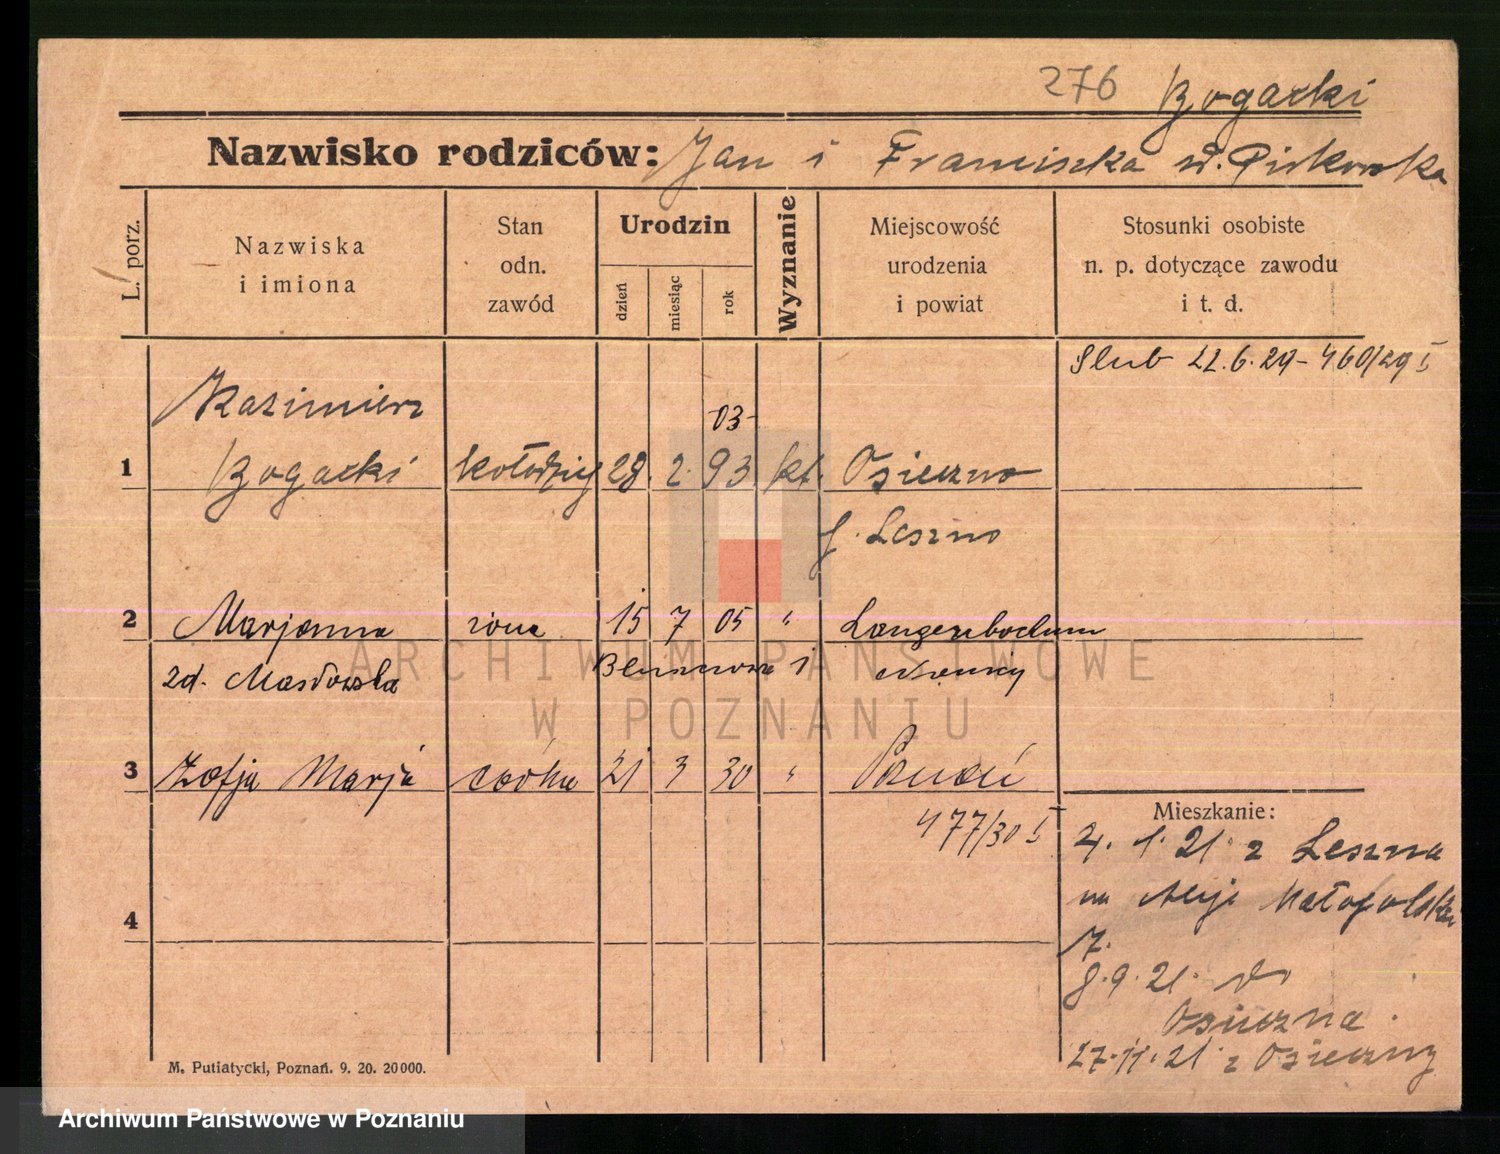 276 Bogacki
Nazwisko rodziców: Jan i Franciszka
L. porz.
Nazwiska
i imiona
Stan
odn.
zawód
Urodzin
dzień
miesiąc
rok
Wyznanie
Miejscowość
urodzenia
i powiat
Stosunki osobiste
n. p. dotyczące zawodu
i t. d.
Slub 22.6.29 - 460/29 I
Kazimierz
03
1 Bogacki kołodziej 28. 2. 93 kt. Osieczno
p. Leszno
2 Marjanna żona 15 7 05 " Langenbochum
zd. Masłowska
3 Zofja Marja córka 21 3 30 " Poznań
477/30 I
Mieszkanie:
4. 1. 21 z Leszna
na Aleje Małopolskie
7.
8.9.21. do
Osieczna.
27.11.21 z Osieczny
4
M. Putiatycki, Poznań. 9. 20. 20000.
ARCHIWUM PAŃSTWOWE
W POZNANIU
Archiwum Państwowe w Poznaniu